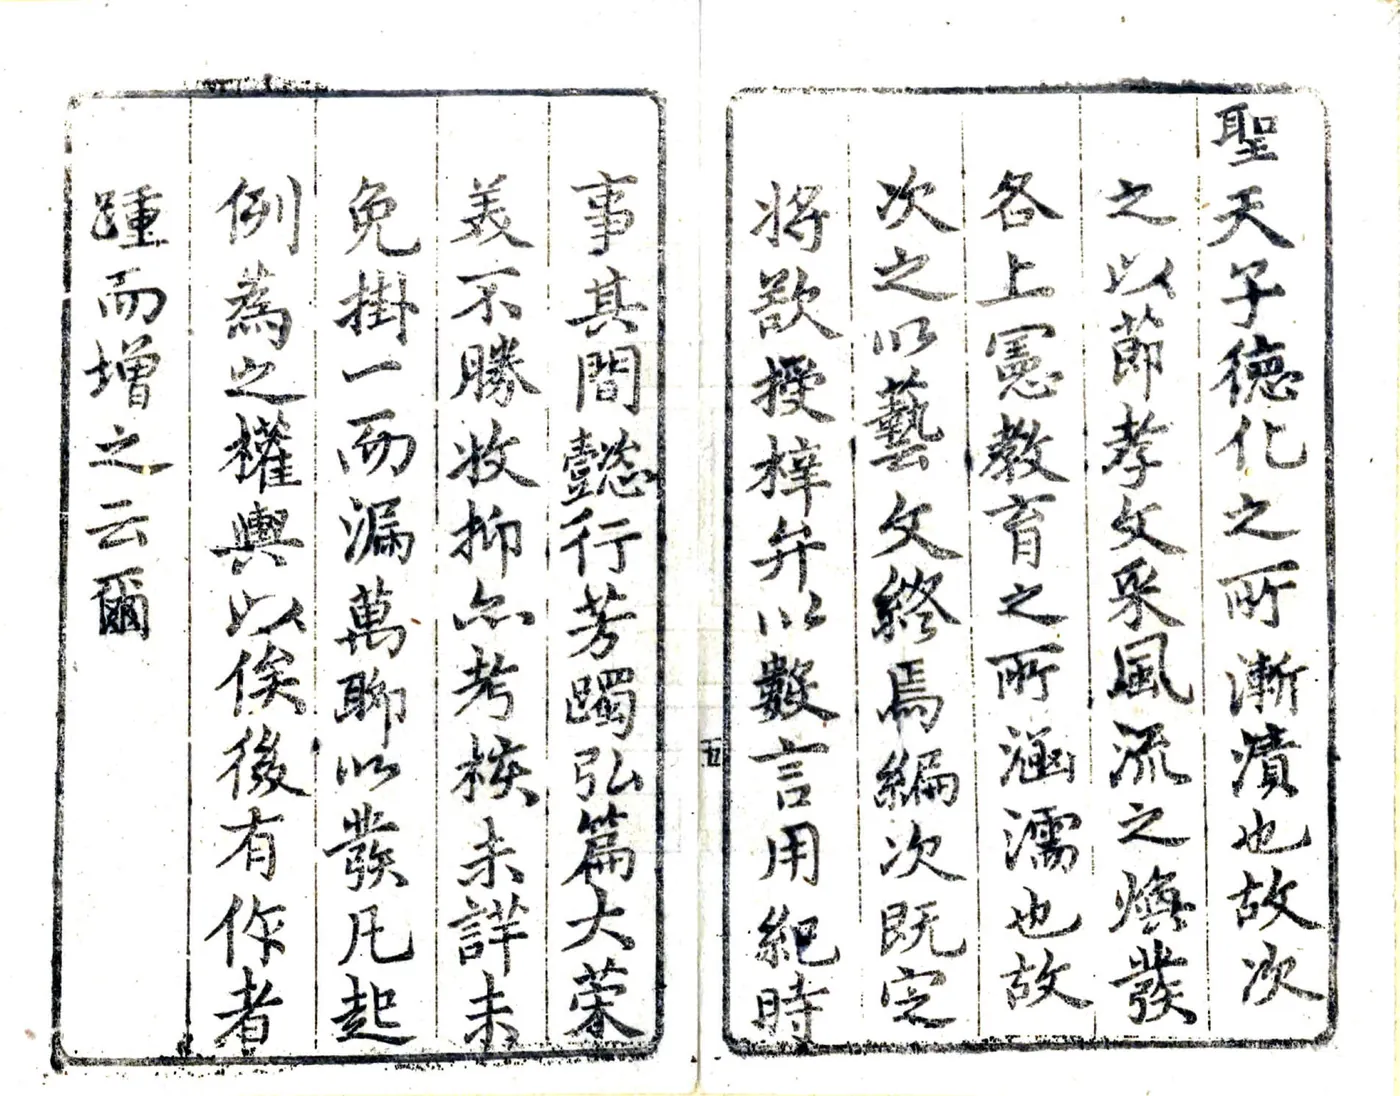 聖天子德化之所漸漬也故次
之以節孝文采風流之煥發
各上憲教育之所涵濡也故
次之以藝文終焉編次既定
將欲授梓弁以數言用紀時
五
事其間懿行芳躅弘篇大業
美不勝收抑亦考核未詳未
免掛一而漏萬聊以發凡起
例為之權輿以俟後有作者
踵而增之云爾